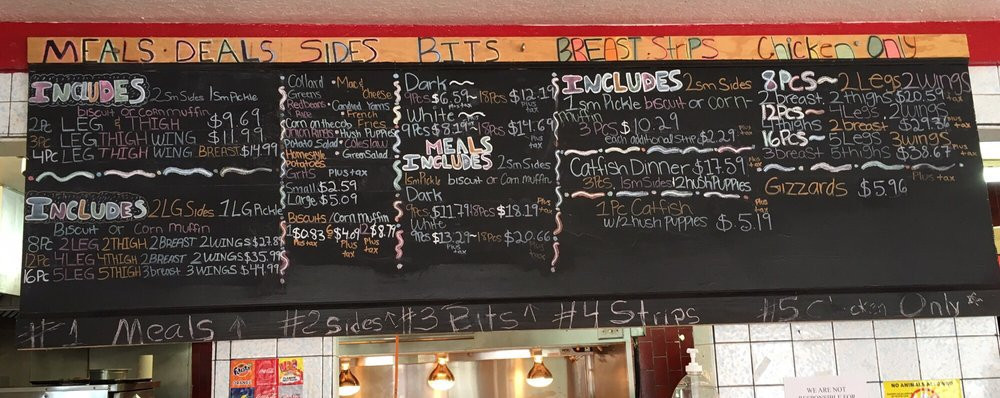 MEALS·DEALS
INCLUDES 2sm Sides 1sm Pickle
biscuit or corn muffin
2Pc LEG & THIGH $9.69
3Pc LEG THIGH WING $11.99
4Pc LEG THIGH WING BREAST $14.99
INCLUDES 2LG Sides 1LG Pickle
Biscuit or Corn muffin
8Pc 2LEG 2THIGH 2BREAST 2WINGS $27.89
12Pc 4LEG 4THIGH 2BREAST 2WINGS $35.99
16Pc 5LEG 5THIGH 3breast 3WINGS $44.99
SIDES
Collard Greens
Mac & Cheese
Redbeans & Rice
Candied Yams
Corn on the cob
French Fries
Onion Rings
Hush Puppies
Potato Salad
Coleslaw
Homestyle
Green Salad
Grits
Plus tax
Small $2.59
Large $5.09
Biscuits/Corn Muffin
1 $0.83 6 $4.09 12 $8.79
Plus tax Plus tax Plus tax
BITS
Dark
9Pcs $6.59 18Pcs $12.19
Plus tax
White
9Pcs $8.19 18Pcs $14.69
Plus tax
MEALS
INCLUDES 2sm Sides
1sm Pickle biscuit or Corn muffin
Dark
9Pcs $11.79 18Pcs $18.19
Plus tax
White
9Pcs $13.29 18Pcs $20.66
Plus tax
BREAST·STRIPS
INCLUDES 2sm Sides
1sm Pickle biscuit or corn
muffin
3 Pcs $10.29
each additional strip $2.29
Plus tax
Catfish Dinner $17.59
Plus tax
3Pcs, 1sm Sides 12hush Puppies
1Pc Catfish
w/2hush puppies $5.19
Chicken Only
8PCS 2Legs 2wings
2breast 2thighs $20.59
Plus tax
12PCS
thighs
16PCS 5Legs 3wings
3breast 5thighs $38.67
Plus tax
GIZZARDS $5.96
Plus tax
#1 Meals ↑ #2 Sides ↑ #3 Bits ↑ #4 Strips #5 Chicken Only
Fanta
ORANGE
WE ARE NOT
RESPONSIBLE FOR
NO ANIMALS ALLOWED